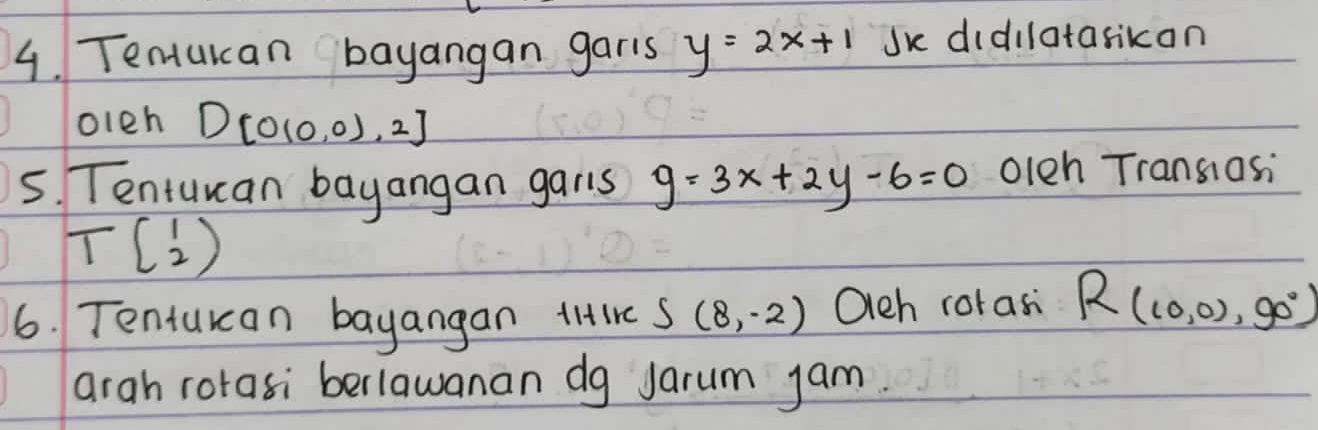 4. Tentukan bayangan garis y = 2x+1 Jk didilatasikan
oleh D[O(0,0), 2]
5. Tentukan bayangan garis g = 3x+2y-6=0 oleh Translasi
T (1 2)
6. Tentukan bayangan titik S (8,-2) Oleh rotasi R ((0,0), 90°)
arah rotasi berlawanan dg Jarum jam.